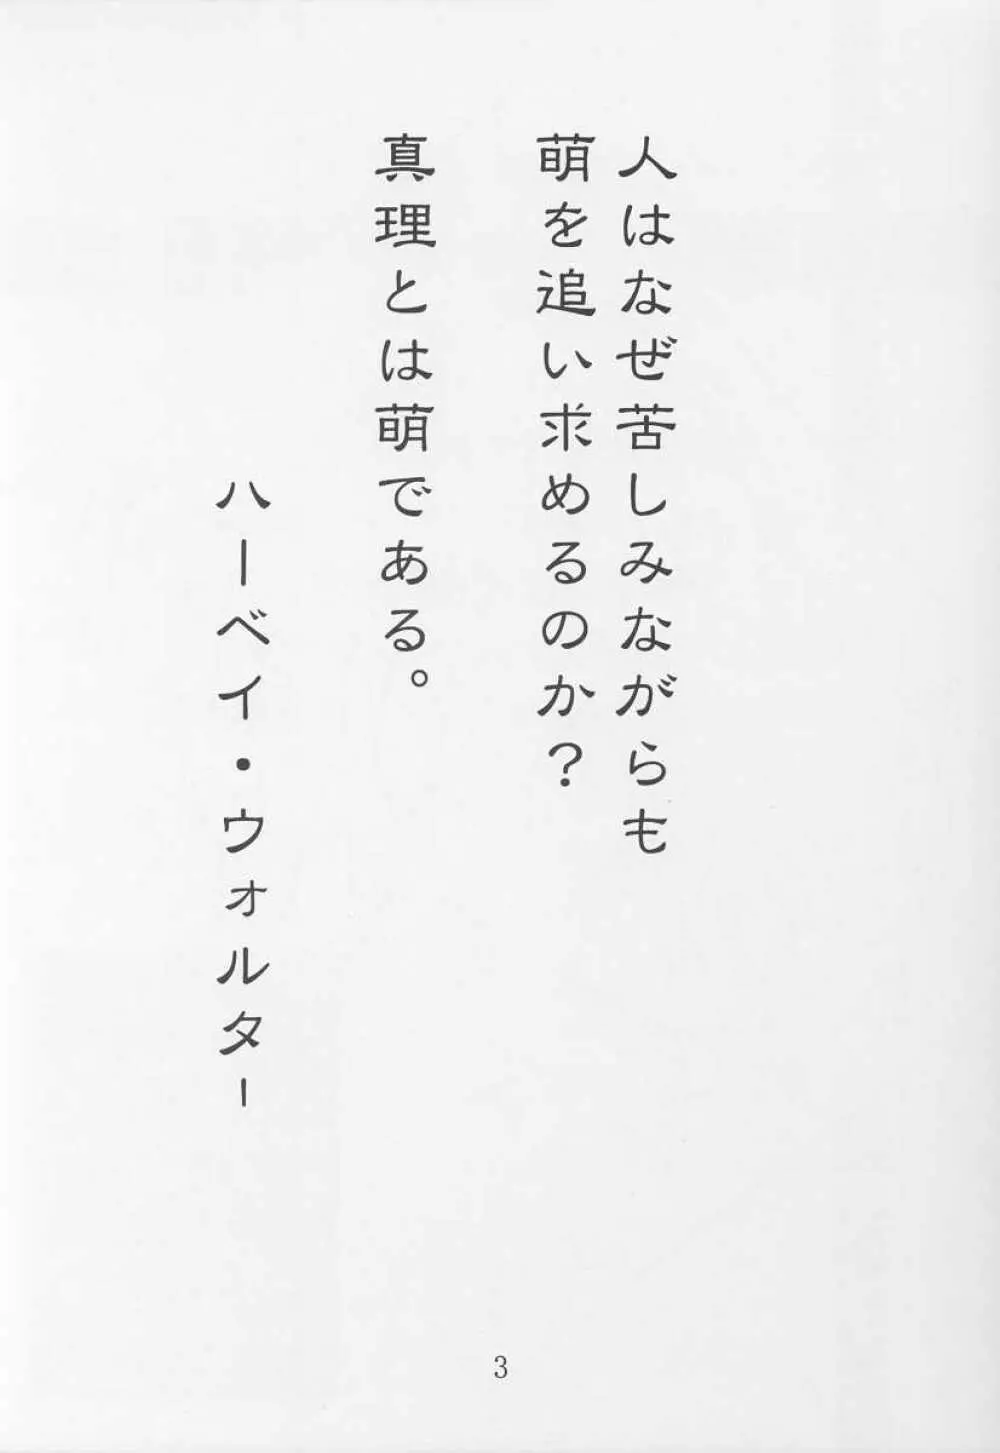 人はなぜ苦しみながらも
萌を追い求めるのか?
真理とは萌である。
ハーベイ・ウォルター
3